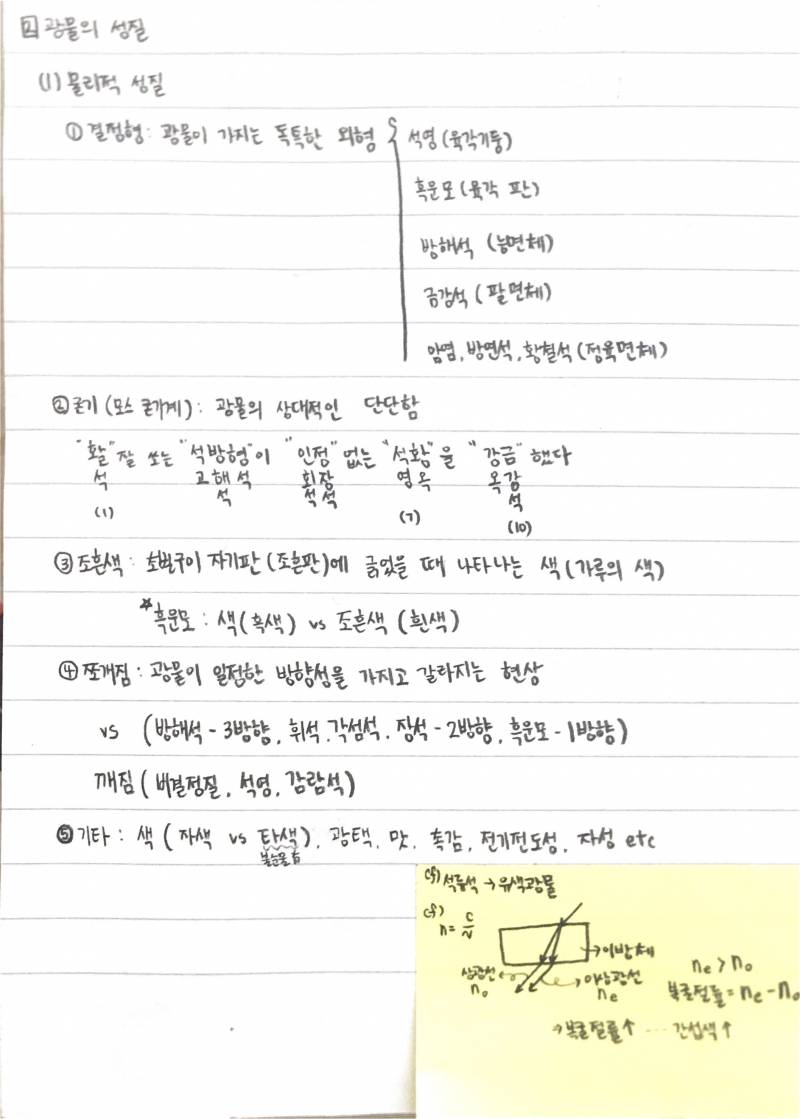 2 광물의 성질
(1) 물리적 성질
① 결정형: 광물이 가지는 독특한 외형
석영 (육각기둥)
흑운모 (육각 판)
방해석 (능면체)
금강석 (팔면체)
암염, 방연석, 황철석 (정육면체)
② 굳기 (모스 굳기계): 광물의 상대적인 단단함
"활" 잘 쏘는 "석방형"이 "인정" 없는 "석황"을 "강금"했다
석 고해석 회장 영옥 옥강
석 석석 석
(1) (7) (10)
③ 조흔색: 초벌구이 자기판 (조흔판)에 긁었을 때 나타나는 색 (가루의 색)
☆흑운모: 색(흑색) vs 조흔색 (흰색)
④ 쪼개짐: 광물이 일정한 방향성을 가지고 갈라지는 현상
vs (방해석 - 3방향, 휘석, 각섬석, 장석 - 2방향, 흑운모 - 1방향)
깨짐 (비결정질, 석영, 감람석)
⑤ 기타: 색 (자색 vs 타색), 광택, 맛, 촉감, 전기전도성, 자성 etc
불순물有
cf) 석류석 → 유색광물
cf) n = c/v
→ 이방체
상광선 n₀
이상광선 nₑ
nₑ > n₀
복굴절률 = nₑ - n₀
→ 복굴절률↑ ··· 간섭색↑